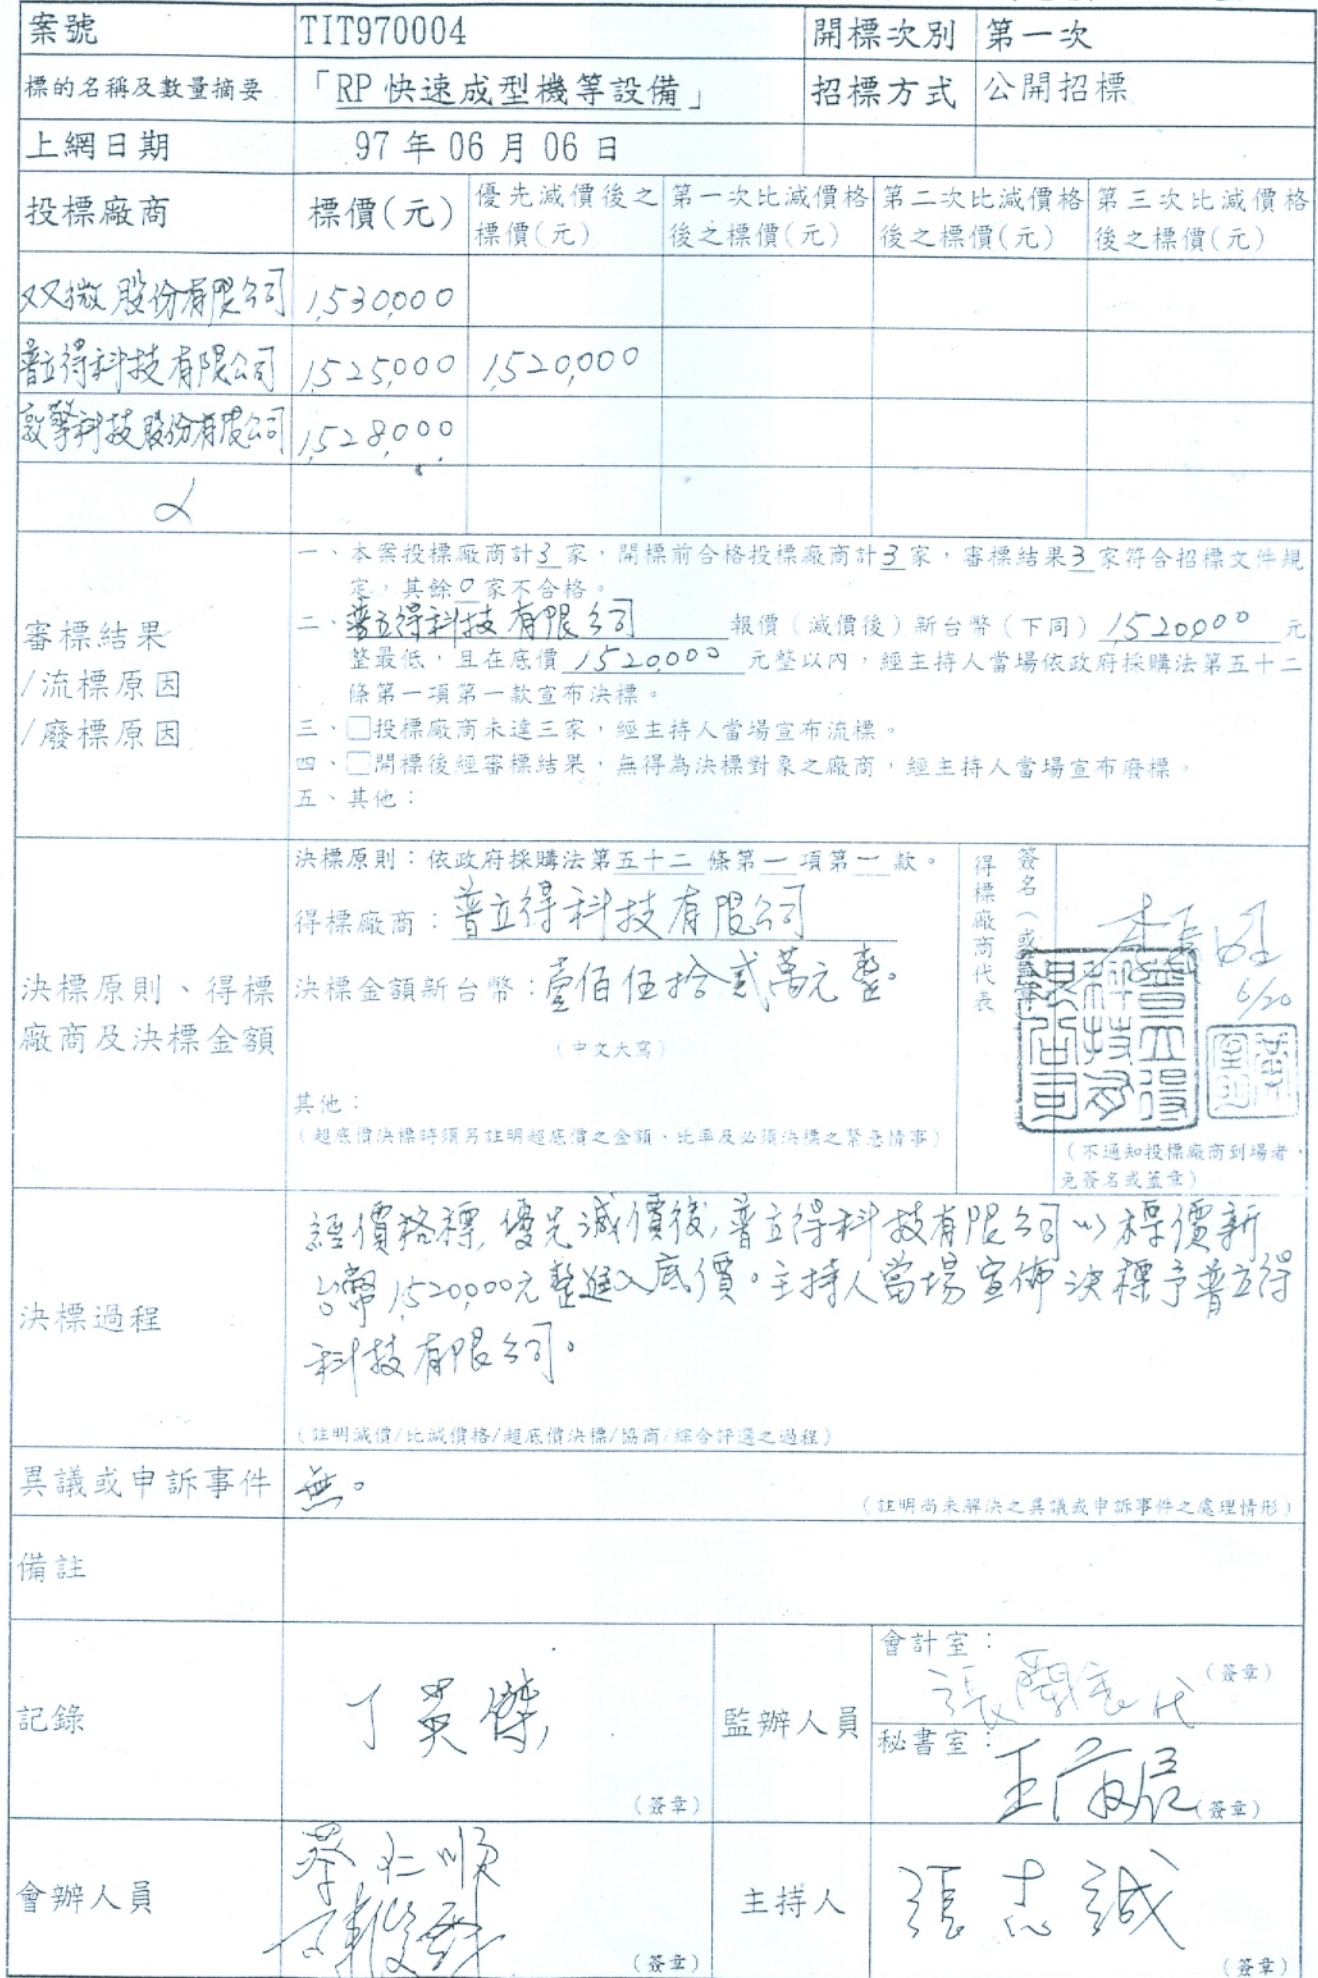 案號 TIT970004 開標次別 第一次
標的名稱及數量摘要 「RP 快速成型機等設備」 招標方式 公開招標
上網日期 97 年 06 月 06 日
投標廠商 標價(元) 優先減價後之標價(元) 第一次比減價格後之標價(元) 第二次比減價格後之標價(元) 第三次比減價格後之標價(元)
双微股份有限公司 1,530,000
普立得科技有限公司 1,525,000 1,520,000
敦擎科技股份有限公司 1,528,000
審標結果
/流標原因
/廢標原因
一、本案投標廠商計3家，開標前合格投標廠商計3家，審標結果3家符合招標文件規
定，其餘0家不合格。
二、普立得科技有限公司 報價（減價後）新台幣（下同）1,520,000元
整最低，且在底價1,520,000元整以內，經主持人當場依政府採購法第五十二
條第一項第一款宣布決標。
三、□投標廠商未達三家，經主持人當場宣布流標。
四、□開標後經審標結果，無得為決標對象之廠商，經主持人當場宣布廢標。
五、其他：
決標原則、得標
廠商及決標金額
決標原則：依政府採購法第五十二條第一項第一款。
得標廠商：普立得科技有限公司
決標金額新台幣：壹佰伍拾貳萬元整。
（中文大寫）
其他：
（超底價決標時須另註明超底價之金額、比率及必須決標之緊急情事）
得標廠商代表
簽名（或蓋章）
6/20
普立得科技有限公司
（不通知投標廠商到場者，
免簽名或蓋章）
決標過程
經價格標,優先減價後,普立得科技有限公司以標價新
台幣1,520,000元整進入底價。主持人當場宣佈決標予普立得
科技有限公司。
（註明減價/比減價格/超底價決標/協商/綜合評選之過程）
異議或申訴事件 無。
（註明尚未解決之異議或申訴事件之處理情形）
備註
記錄 丁英傑 （簽章）
監辦人員
會計室：
（簽章）
秘書室：
（簽章）
會辦人員 蔡仁順 （簽章）
主持人 張志誠 （簽章）